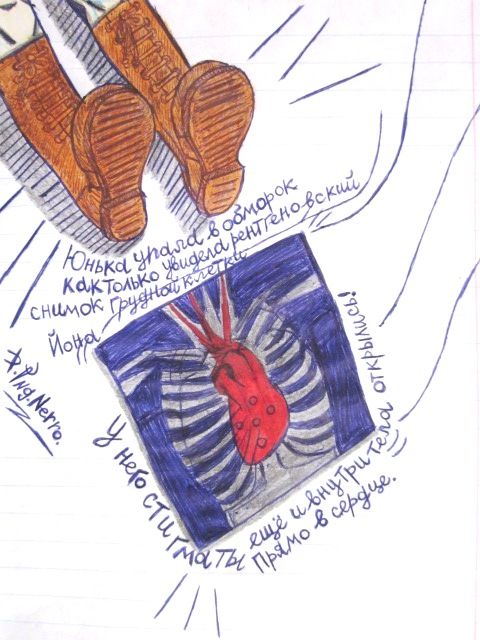 Юнька упала в обморок
как только увидела рентгеновский
снимок грудной клетки
Йона
У него стигматы ещё и внутри тела открылись!
Прямо в сердце.